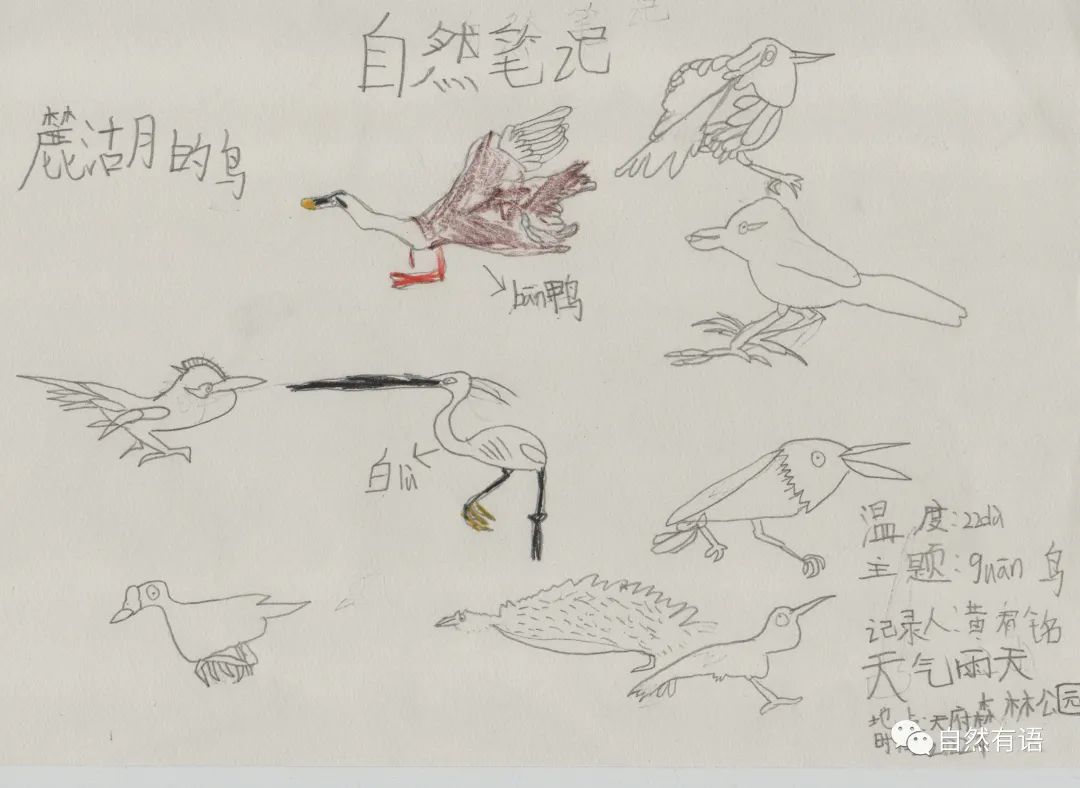 自然笔记
麓湖的鸟
bān鸭
白lù
温度:22dù
主题:guān鸟
记录人:黄有铭
天气雨天
地点:天府森林公园
时
自然有语